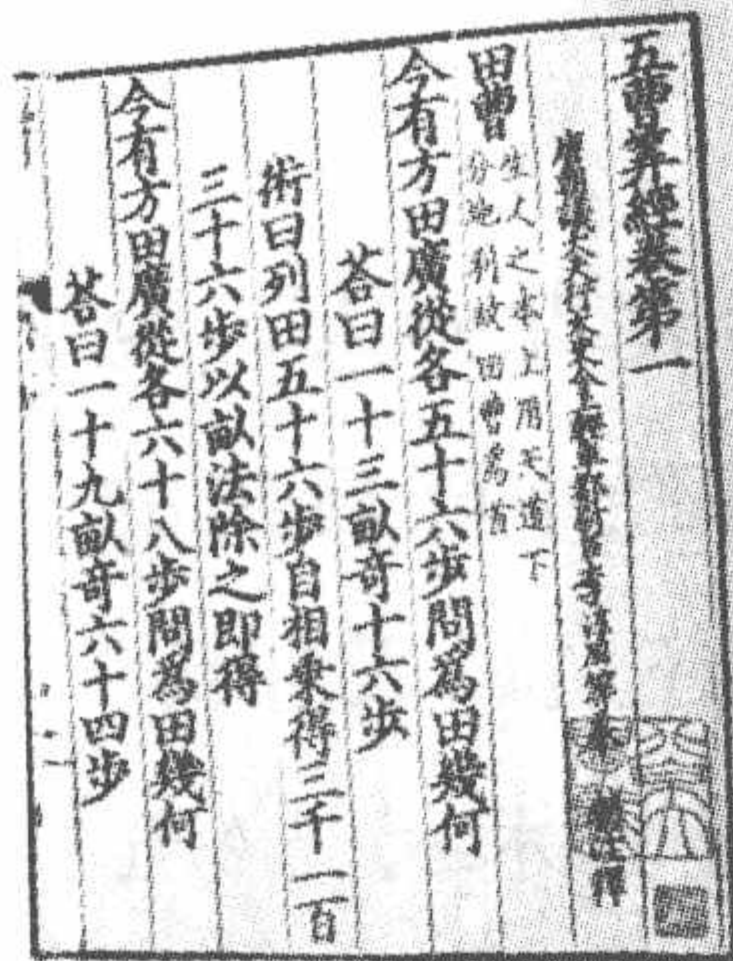 五曹筭經卷第一
唐朝議大夫行太史令上輕車都尉臣李淳風等奉 勑注釋
田曹生人之本上用天道下
分地利故田曹為首
今有方田廣從各五十六步問爲田幾何
荅曰一十三畝奇十六步
術曰列田五十六步自相乗得三千一百
三十六步以畝法除之即得
今有方田廣從各六十八步問爲田幾何
荅曰一十九畝奇六十四步